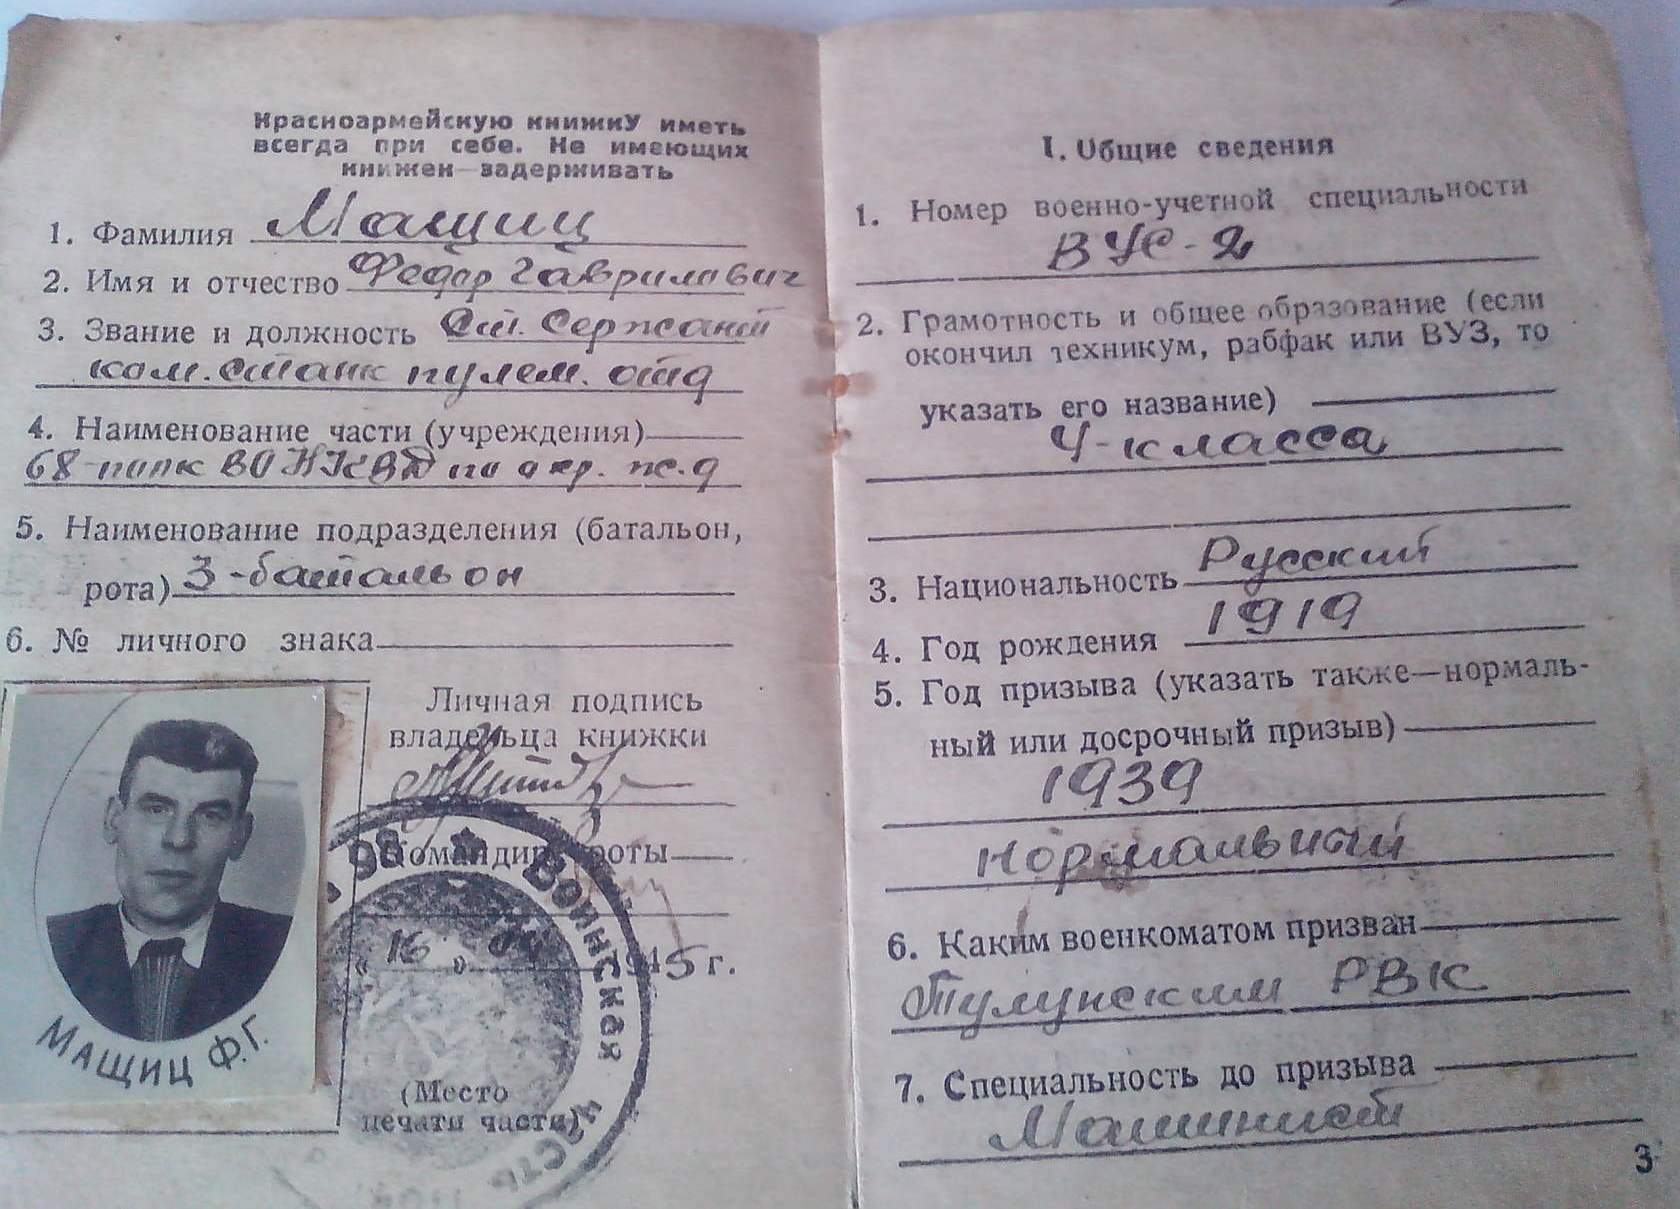 Красноармейскую книжку иметь
всегда при себе. Не имеющих
книжек—задерживать
1. Фамилия Мащиц
2. Имя и отчество Федор Гаврилович
3. Звание и должность Ст. Сержант
ком. станк пулем. отд
4. Наименование части (учреждения)
68-полк ВО НКВД по охр. ж.д
5. Наименование подразделения (батальон,
рота) 3-батальон
6. № личного знака
Личная подпись
владельца книжки
Командир роты
« 16 » 04 1945 г.
(Место
печати части)
98 Воинская часть
МАЩИЦ Ф.Г.
I. Общие сведения
1. Номер военно-учетной специальности
ВУС-2
2. Грамотность и общее образование (если
окончил техникум, рабфак или ВУЗ, то
указать его название)
4-класса
3. Национальность Русский
4. Год рождения 1919
5. Год призыва (указать также—нормаль-
ный или досрочный призыв)
1939
нормальный
6. Каким военкоматом призван
Тулунским РВК
7. Специальность до призыва
Машинист
3